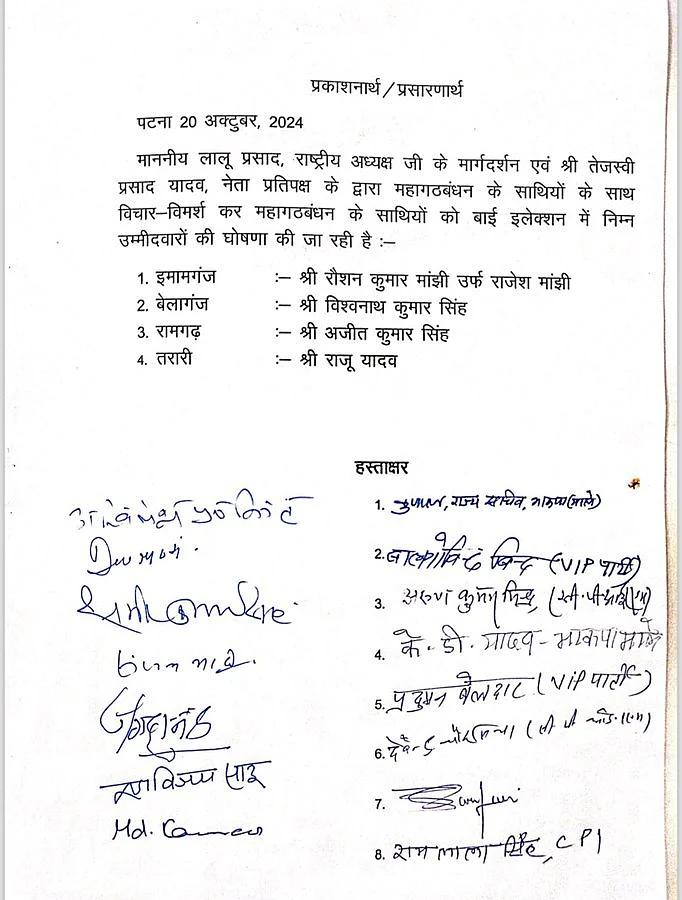 प्रकाशनार्थ / प्रसारणार्थ
पटना 20 अक्टुबर, 2024
माननीय लालू प्रसाद, राष्ट्रीय अध्यक्ष जी के मार्गदर्शन एवं श्री तेजस्वी
प्रसाद यादव, नेता प्रतिपक्ष के द्वारा महागठबंधन के साथियों के साथ
विचार–विमर्श कर महागठबंधन के साथियों को बाई इलेक्शन में निम्न
उम्मीदवारों की घोषणा की जा रही है :–
1. इमामगंज :– श्री रौशन कुमार मांझी उर्फ राजेश मांझी
2. बेलागंज :– श्री विश्वनाथ कुमार सिंह
3. रामगढ़ :– श्री अजीत कुमार सिंह
4. तरारी :– श्री राजू यादव
हस्ताक्षर
1. कुणाल, राज्य सचिव, भाकपा (माले)
2. बालगोविन्द बिन्द (VIP पार्टी)
3. अरुण कुमार मिश्र, (सी.पी.आई(एम)
4. के. डी. यादव - भाकपा माले
5. (VIP पार्टी)
6.
7.
8. राम लाला सिंह, CPI
Md.